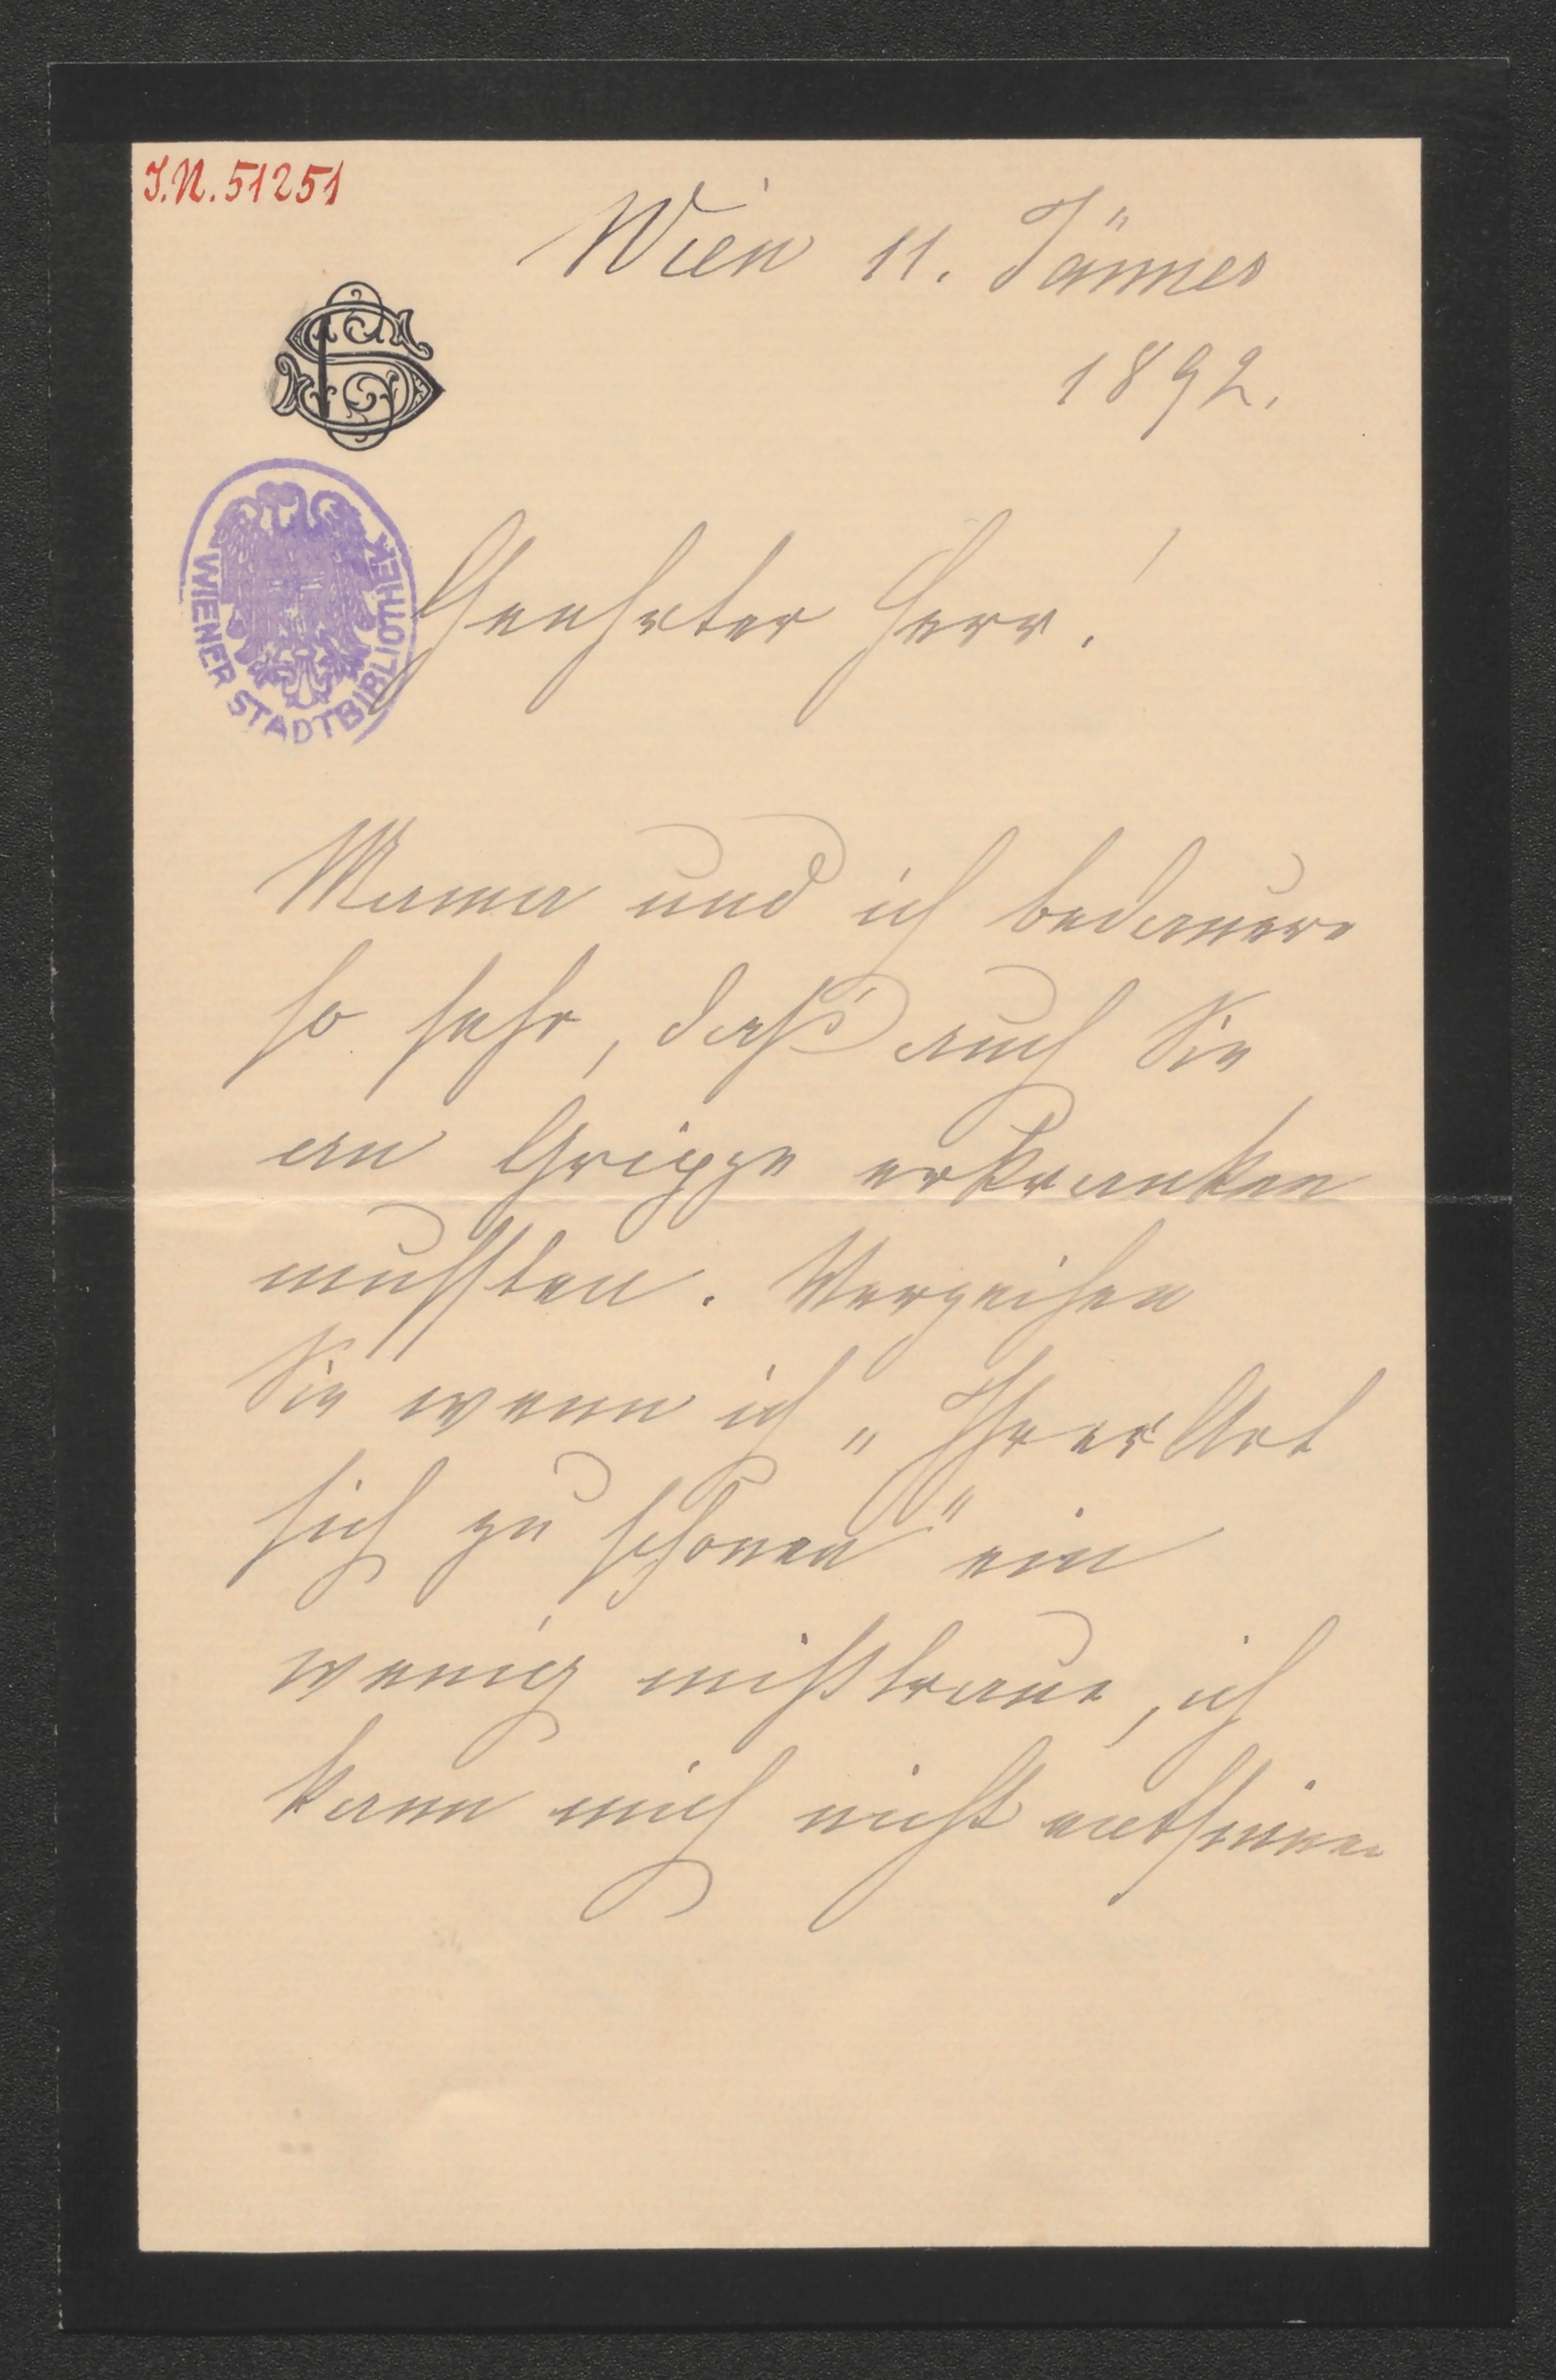 J.N. 51251
Wien 11. Jänner
1892.
WIENER STADTBIBLIOTHEK
Geehrter Herr!
Mama und ich bedauern
so sehr, daß auch Sie
an Grippe erkranken
mussten. Verzeihen
Sie wenn ich „Ihrer Art
sich zu schonen" ein
wenig mißtraue, ich
kann mich nicht entsinnen